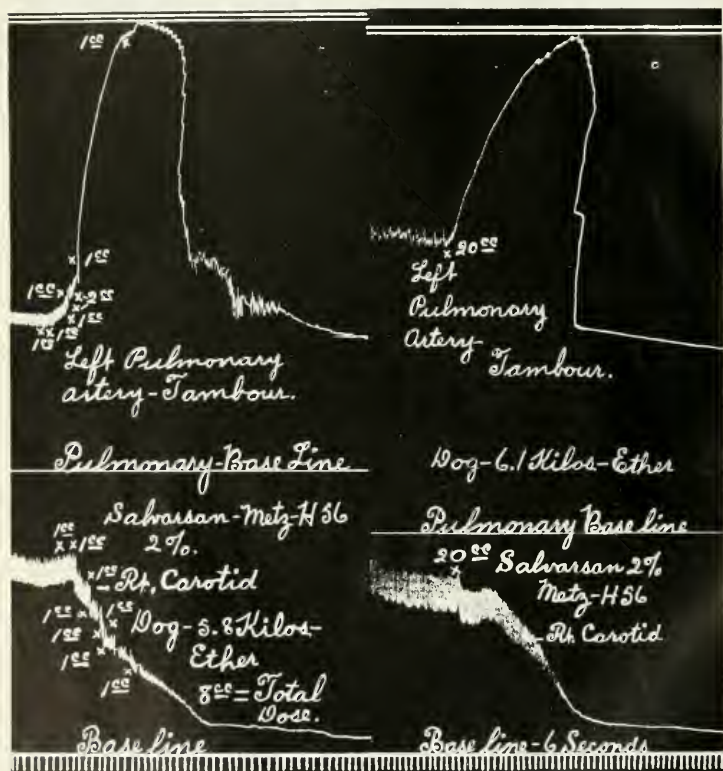 1cc
1cc
1cc 2cc
1cc
1cc 1cc
Left Pulmonary
artery-Tambour.
Pulmonary-Base Line
Salvarsan-Metz-H56
2%.
1cc
1cc
1cc
Rt. Carotid
1cc
1cc
1cc
Dog-5.8 Kilos-
Ether
1cc
1cc
8cc = Total
Dose.
Base line
20cc
Left
Pulmonary
Artery-
Tambour.
Dog-6.1 Kilos-Ether
Pulmonary Base line
20cc Salvarsan 2%
Metz-H56
Rt. Carotid
Base line-6 Seconds